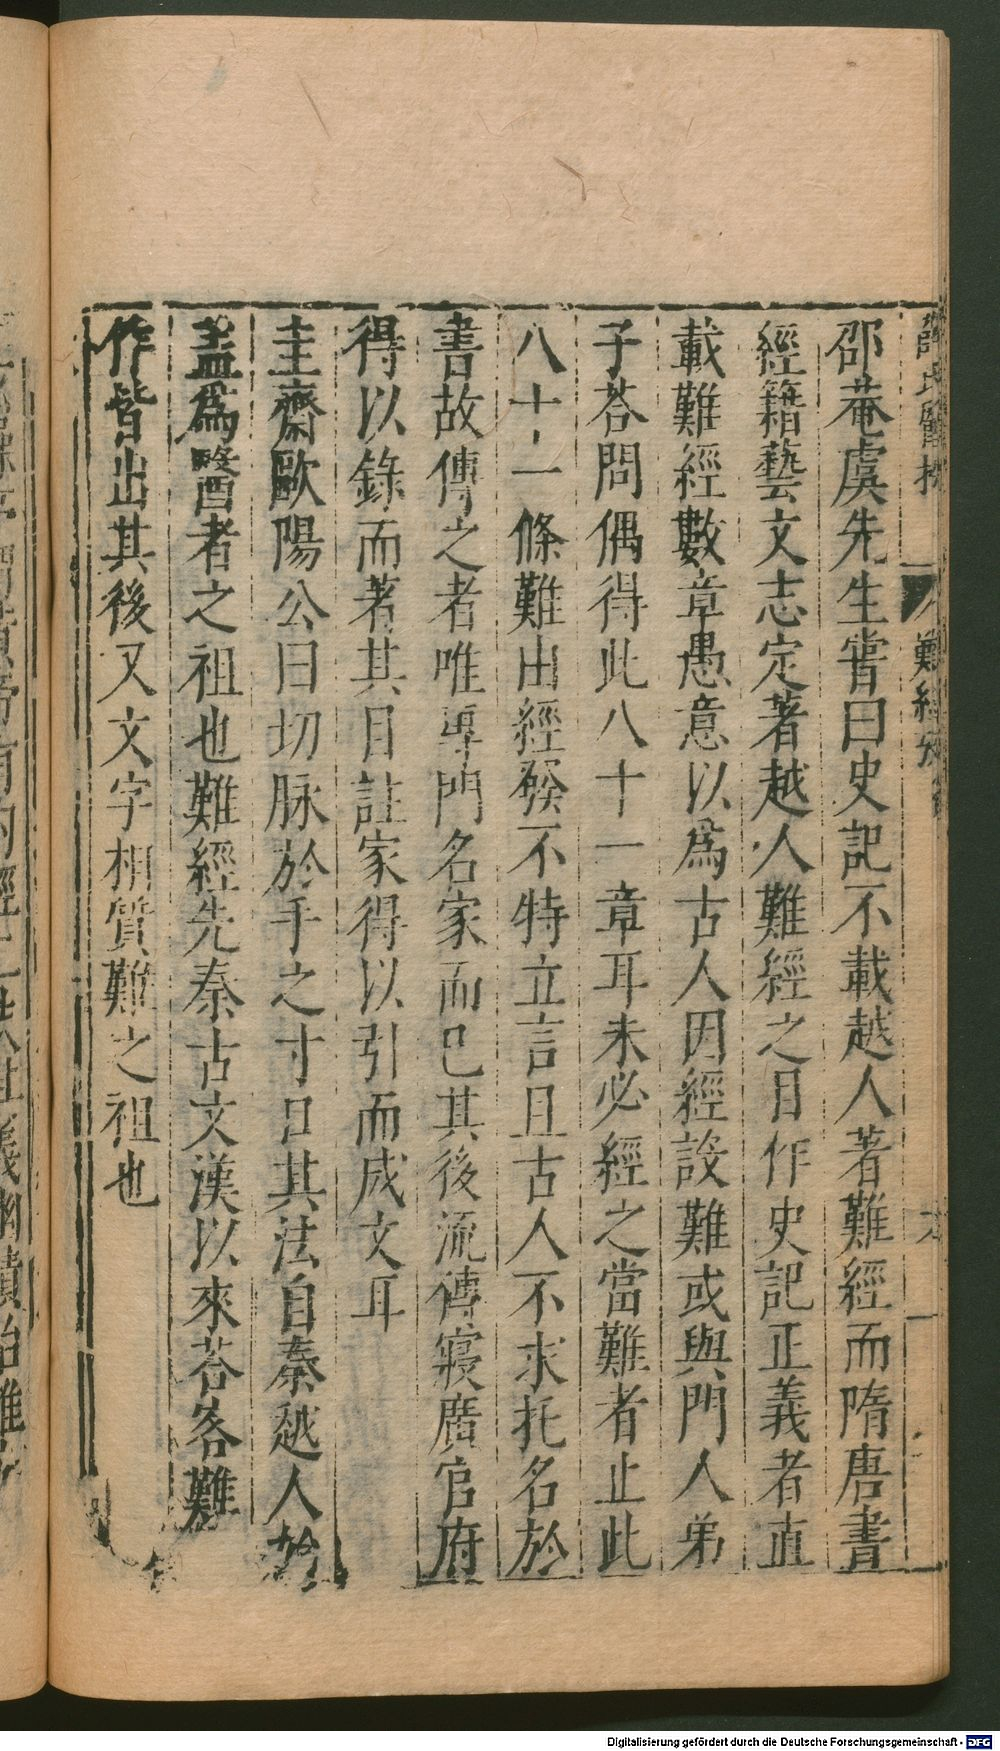 薛氏醫按 難經 六
邵菴虞先生甞曰史記不載越人著難經而隋唐書
經籍藝文志定著越人難經之目作史記正義者直
載難經數章愚意以爲古人因經設難或與門人弟
子荅問偶得此八十一章耳未必經之當難者止此
八十一條難出經發不特立言且古人不求托名於
書故傳之者唯專門名家而已其後流傳寖廣官府
得以錄而著其目註家得以引而成文耳
圭齋歐陽公曰切脉於手之寸口其法自秦越人始
盖爲醫者之祖也難經先秦古文漢以來荅客難
作皆出其後又文字相質難之祖也
Digitalisierung gefördert durch die Deutsche Forschungsgemeinschaft - DFG